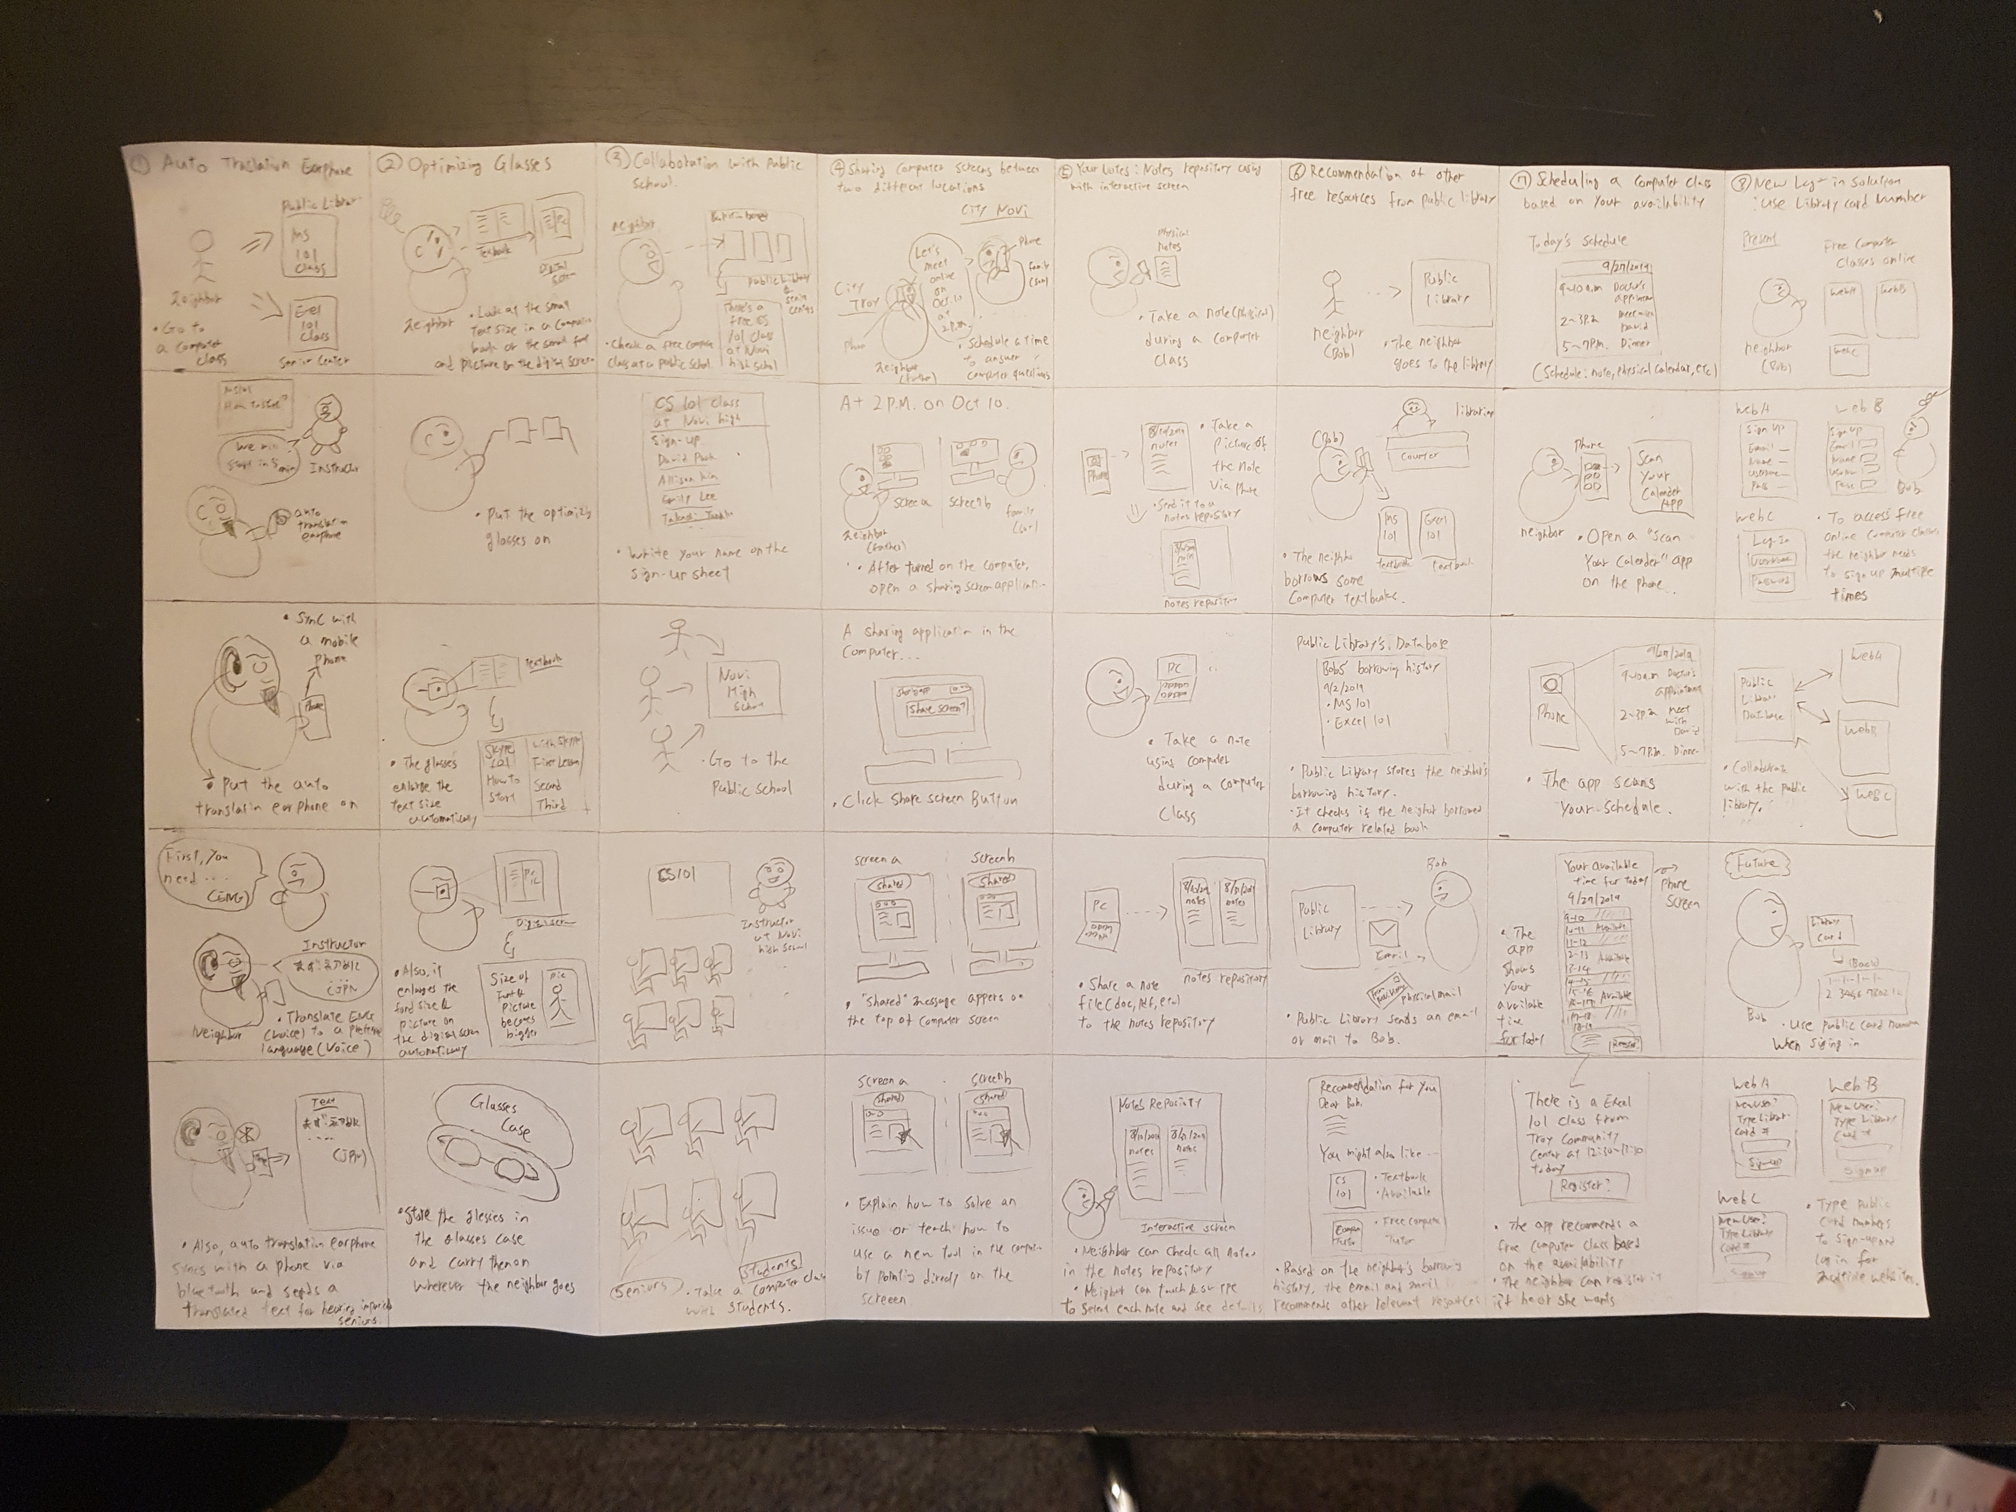 ① Auto Translation Earphone
Public Library
MS
101
Class
Neighbor
• Go to
a computer
class
Excel
101
Class
Senior Center
Instructor
auto
translation
earphone
• Sync with
a mobile
phone
Phone
• Put the auto
translation earphone on
First, you
need ....
(ENG)
Instructor
(JPN)
Neighbor
• Translate ENG
(voice) to a preferred
language (voice)
Text
(JPN)
• Also, auto translation earphone
syncs with a phone via
bluetooth and sends a
translated text for hearing impaired
seniors.
② Optimizing Glasses
Textbook
Digital Screen
Neighbor
• Look at the small
text size in a computer
book or the small font
and picture on the digital screen
• Put the optimizing
glasses on
Textbook
• The glasses
enlarge the
text size
automatically
Skype
101
How to
Start
With Skype
First Lesson
Second
Third
Digital screen
• Also, it
enlarges the
font size &
picture on
the digital screen
automatically
Size of
Font &
Picture
becomes
bigger
pic
Glasses
Case
• Store the glasses in
the glasses case
and carry them on
wherever the neighbor goes
③ Collaboration with Public
School.
neighbor
Public Library
&
Senior
Center
There's a
free CS
101 class
at Novi
high school
• Check a free computer
class at a public school.
CS 101 class
at Novi high
Sign-up
David Park
Allison Kim
Emily Lee
• Write your name on the
sign-up sheet
Novi
High
School
• Go to the
Public school
CS101
Instructor
at Novi
high school
Seniors
Students
• Take a computer class
with students.
④ Sharing Computer screens between
two different locations
City Novi
City
Troy
Let's
meet
online
on
Oct.10
at
2 P.M.
Phone
family
(son)
Phone
Neighbor
(father)
• Schedule a time
to answer
computer questions
At 2 P.M. on Oct 10.
Screen a
Screen b
Neighbor
(father)
family
(son)
• After turned on the computer,
open a sharing screen application.
A sharing application in the
computer...
Share screen?
• Click Share screen Button
Screen a
Screen b
(Shared)
(Shared)
• "Shared" message appers on
the top of computer screen
Screen a
Screen b
(Shared)
(Shared)
• Explain how to solve an
issue or teach how to
use a new tool in the computer
by pointing directly on the
screen
⑤ Your Notes: Notes repository using
with interactive screen
Physical
notes
• Take a note (physical)
during a computer
class
Phone
notes
• Take a
picture of
the note
via phone
• Send it to a
notes repository
notes repository
PC
• Take a note
using computer
during a computer
class
PC
notes
notes
notes repository
• Share a note
file (doc, pdf, etc)
to the notes repository
Notes Repository
notes
notes
Interactive screen
• Neighbor can check all notes
in the notes repository
• Neighbor can touch & swipe
to select each note and see details
⑥ Recommendation of other
free resources from public library
Public
Library
neighbor
(Bob)
• The neighbor
goes to the library
librarian
(Bob)
Counter
MS
101
Excel
101
Textbook
Textbook
• The neighbor
borrows some
Computer textbooks.
Public Library's Database
Bob's borrowing history
9/2/2019
• MS 101
• Excel 101
• Public Library stores the neighbor's
borrowing history.
• It checks is the neighbor borrowed
a computer related book
Bob
Public
Library
Email
physical mail
• Public Library sends an email
or mail to Bob.
Recommendation for you
Dear Bob,
You might also like...
CS
101
• Textbook
• Available
Computer
Tutor
• Free computer
Tutor
• Based on the neighbor's borrowing
history, the email and mail
recommends other relevant resources
⑦ Scheduling a computer class
based on your availability
Today's Schedule
9/27/2019
9~10 a.m Doctor's
appointment
2~3 P.M. meet with
David
5~7 P.M. Dinner
(Schedule: note, physical calendar, etc)
Phone
Scan
Your
Calender
App
neighbor
• Open a "Scan
Your Calender" app
on the phone.
Phone
9/27/2019
9~10 a.m Doctor's
appointment
2~3 P.M. meet
with
David
5~7 P.M. Dinner
• The app scans
your schedule.
Your available
time for today
9/27/2019
Phone
Screen
• The
app
shows
your
available
time
for today
There is a Excel
101 class from
Troy Community
Center at 12:30~1:30
today
Register?
• The app recommends a
free computer class based
on the availability
• The neighbor can register it
if he or she wants
⑧ New Log-in Solution
: Use Library card Number
Present
Free Computer
Classes online
Web A
Web B
Web C
neighbor
(Bob)
Web A
Sign up
Email
Name
Username
Pass
Web B
Sign up
Email
Name
Pass
Bob
Web C
Log-In
Username
Password
• To access free
online computer classes
the neighbor needs
to sign up multiple
times
Public
Library
Database
Web A
Web B
Web C
• Collaborate
with the public
library.
Future
Library
Card
(Back)
Bob
• Use public card number
when signing in
Web A
New User?
Type Library
Card #
Sign up
Web B
New User?
Type Library
Card #
Sign up
Web C
New User?
Type Library
Card #
• Type public
card numbers
to sign-up and
log in for
multiple websites.